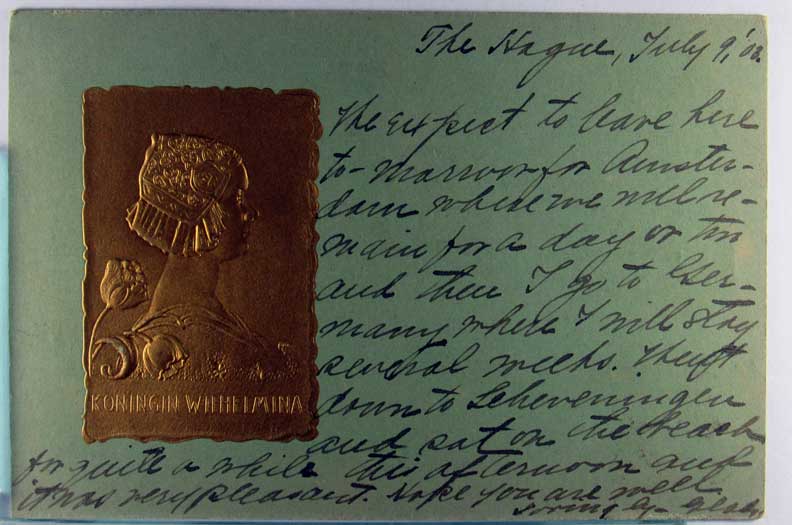 The Hague, July 9, '03.
We expect to leave here
to-morrow for Amster-
dam where we will re-
main for a day or two
and then I go to Ger-
many where I will stay
several weeks. We went
down to Scheveningen
and sat on the beach
for quite a while this afternoon and
it was very pleasant. Hope you are well
KONINGIN WILHELMINA